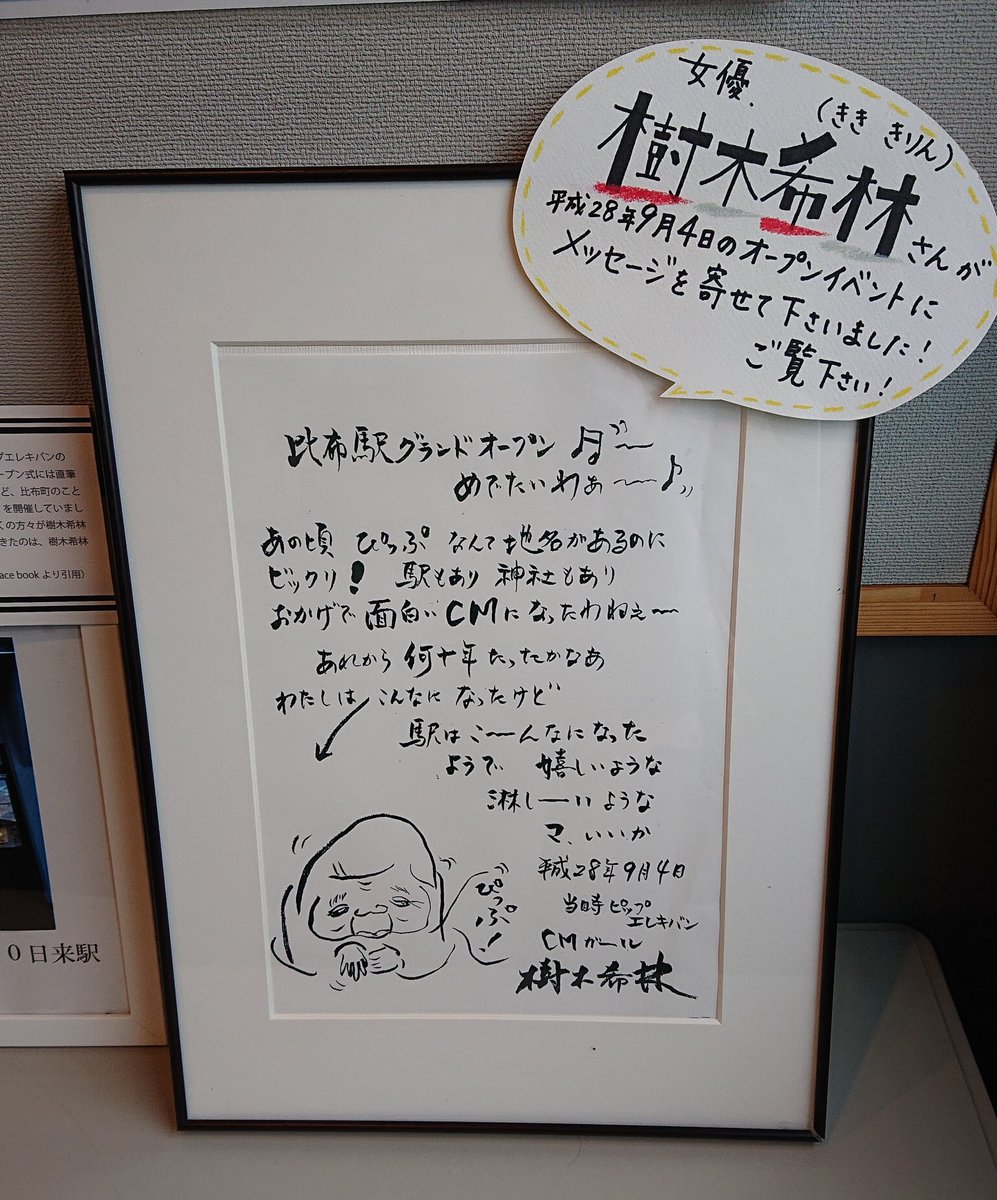 女優.
(きき きりん)
樹木希林さんが
平成28年9月4日のオープンイベントに
メッセージを寄せて下さいました!
ご覧下さい!
比布駅グランドオープン♫〜
めでたいわぁ〜〜♪
あの頃 ぴっぷ なんて地名があるのに
ビックリ! 駅もあり 神社もあり
おかげで面白いCMになったわねぇ〜
あれから何十年たったかなあ
わたしはこんなになったけど
駅はこ〜んなになった
ようで 嬉しいような
淋しーいような
マ、いいか
平成28年9月4日
当時ピップ
エレキバン
CMガール
樹木希林
ぴっぷ!
プエレキバンの
ープン式には直筆
ど、比布町のこと
を開催していまし
くの方々が樹木希林
きたのは、樹木希林
ace book より引用)
0日来駅